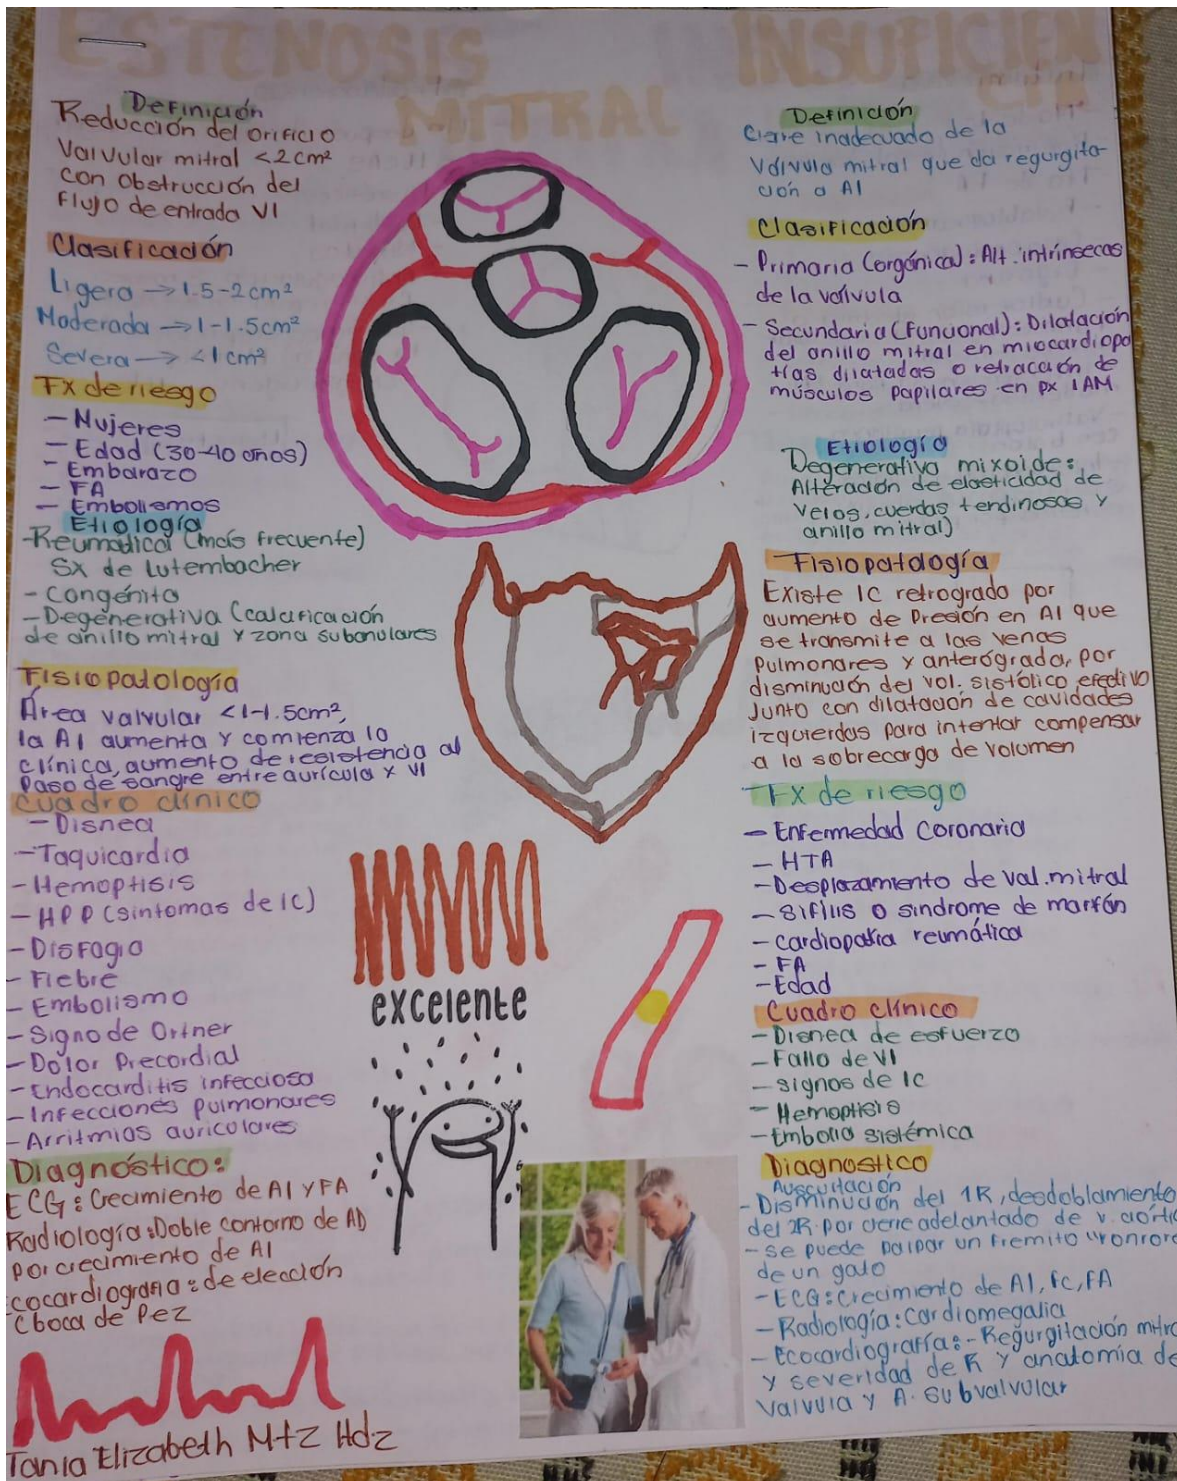 ESTENOSIS
MITRAL
INSUFICIEN
CIA
Definición
Reducción del orificio
Valvular mitral <2cm²
con obstrucción del
Flujo de entrada VI
Clasificación
Ligera → 1.5-2cm²
Moderada → 1-1.5cm²
Severa → <1cm²
Fx de riesgo
- Mujeres
- Edad (30-40 años)
- Embarazo
- FA
- Embolismos
Etiología
- Reumática (más frecuente)
Sx de Lutembacher
- Congénita
- Degenerativa (calcificación
de anillo mitral y zona subanulares
Fisiopatología
Área valvular <1-1.5cm²,
la AI aumenta y comienza la
clínica, aumento de resistencia al
Paso de sangre entre aurícula x VI
Cuadro clínico
- Disnea
- Taquicardia
- Hemoptisis
- HPP (síntomas de IC)
- Disfagia
- Fiebre
- Embolismo
- Signo de Ortner
- Dolor Precordial
- Endocarditis infecciosa
- Infecciones pulmonares
- Arritmias auriculares
Diagnóstico:
ECG: Crecimiento de AI y FA
Radiología: Doble contorno de AD
por crecimiento de AI
Ecocardiografía: de elección
(boca de Pez
Tania Elizabeth Mtz Hdz
excelente
Definición
Cierre inadecuado de la
Válvula mitral que da regurgita-
ción a AI
Clasificación
- Primaria (orgánica): Alt. intrínsecas
de la válvula
- Secundaria (Funcional): Dilatación
del anillo mitral en miocardiopa
tías dilatadas o retracción de
músculos papilares en px IAM
Etiología
Degenerativa mixoide:
Alteración de elasticidad de
velos, cuerdas tendinosas y
anillo mitral)
Fisiopatología
Existe IC retrograda por
aumento de Presión en AI que
se transmite a las venas
Pulmonares y anterógrada, por
disminución del vol. sistólico efectivo
Junto con dilatación de cavidades
izquierdas para intentar compensar
a la sobrecarga de volumen
Fx de riesgo
- Enfermedad Coronaria
- HTA
- Desplazamiento de val. mitral
- Sífilis o síndrome de marfán
- cardiopatía reumática
- FA
- Edad
Cuadro clínico
- Disnea de esfuerzo
- Fallo de VI
- signos de IC
- Hemoptisis
- Embolia sistémica
Diagnostico
Auscultación
- Disminución del 1R, desdoblamiento
del 2R por cierre adelantado de v. aórtic
- se puede palpar un fremito "ronrone
de un gato
- ECG: Crecimiento de AI, FC, FA
- Radiología: Cardiomegalia
- Ecocardiografía: - Regurgitación mitra
y severidad de R y anatomía de
Válvula y A. subvalvular